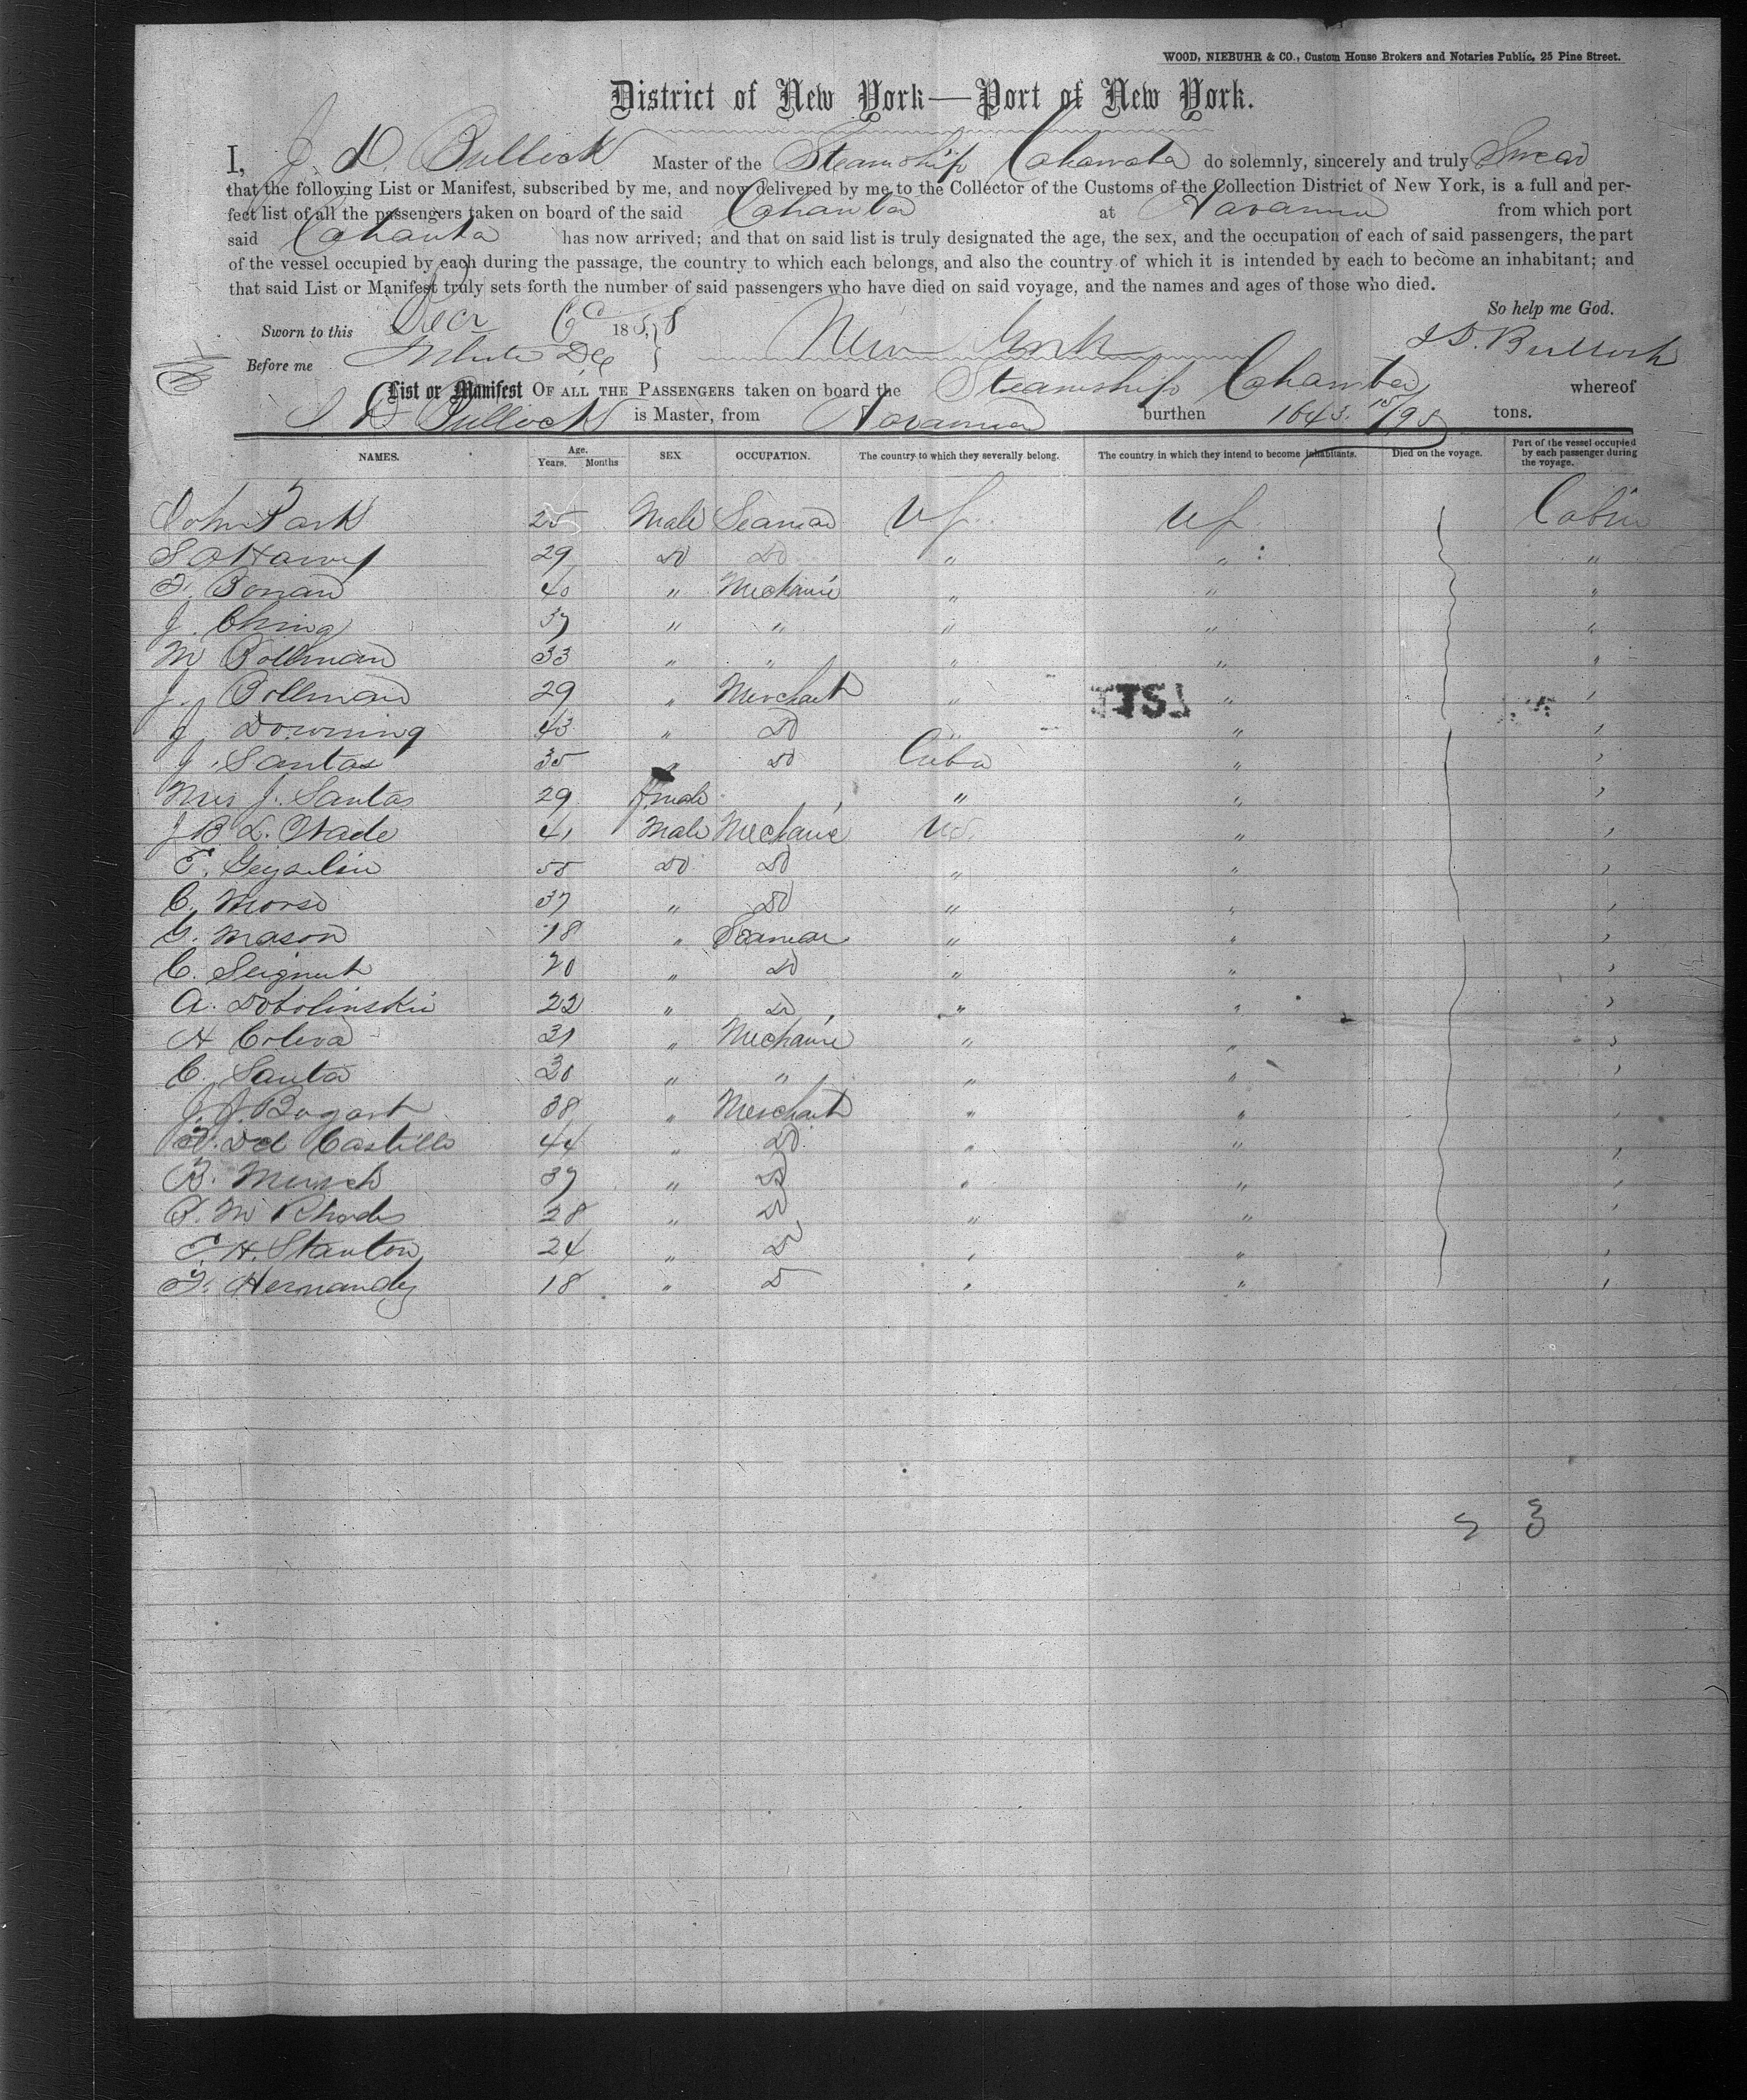 WOOD, NIEBUHR & CO., Custom House Brokers and Notaries Public, 25 Pine Street.
District of New York—Port of New York.
I, J. D. Bullock Master of the Steamship Cahawba do solemnly, sincerely and truly Swear
that the following List or Manifest, subscribed by me, and now delivered by me to the Collector of the Customs of the Collection District of New York, is a full and per-
fect list of all the passengers taken on board of the said Cahawba at Havanna from which port
said Cahawba has now arrived; and that on said list is truly designated the age, the sex, and the occupation of each of said passengers, the part
of the vessel occupied by each during the passage, the country to which each belongs, and also the country of which it is intended by each to become an inhabitant; and
that said List or Manifest truly sets forth the number of said passengers who have died on said voyage, and the names and ages of those who died.
So help me God.
Sworn to this Decr 6 1858 New York J D. Bullock
Before me
List or Manifest OF ALL THE PASSENGERS taken on board the Steamship Cahawba whereof
J D Bullock is Master, from Havanna burthen 1643 tons.
NAMES. Age. Years. Months SEX OCCUPATION. The country to which they severally belong. The country in which they intend to become inhabitants. Died on the voyage. Part of the vessel occupied by each passenger during the voyage.
John Park 25 Male Seaman US US Cabin
29 do do " " "
40 " Mechanic " " "
J. Ching 37 " " " " "
M Pollman 33 " " " " "
J. Pollman 29 " Merchant " " "
J. Downing 43 " do " " "
J. Santas 35 " do Cuba " "
Mrs J. Santas 29 Female " " "
J B L. Wade 41 Male Mechanic US " "
E. Geyselin 55 do do " " "
C. Morse 37 " do " " "
G. Mason 18 " Seaman " " "
C. 20 " do " " "
A. Dobolinskie 22 " do " " "
H 31 " Mechanic " " "
C. Santa 30 " " " " "
J. J. Bogart 38 " Merchant " " "
F. Del Castillo 44 " do " " "
B. 37 " do " " "
P. M Rhodes 28 " do " " "
E. H. Stanton 24 " do " " "
F. Hernandez 18 " do " " "